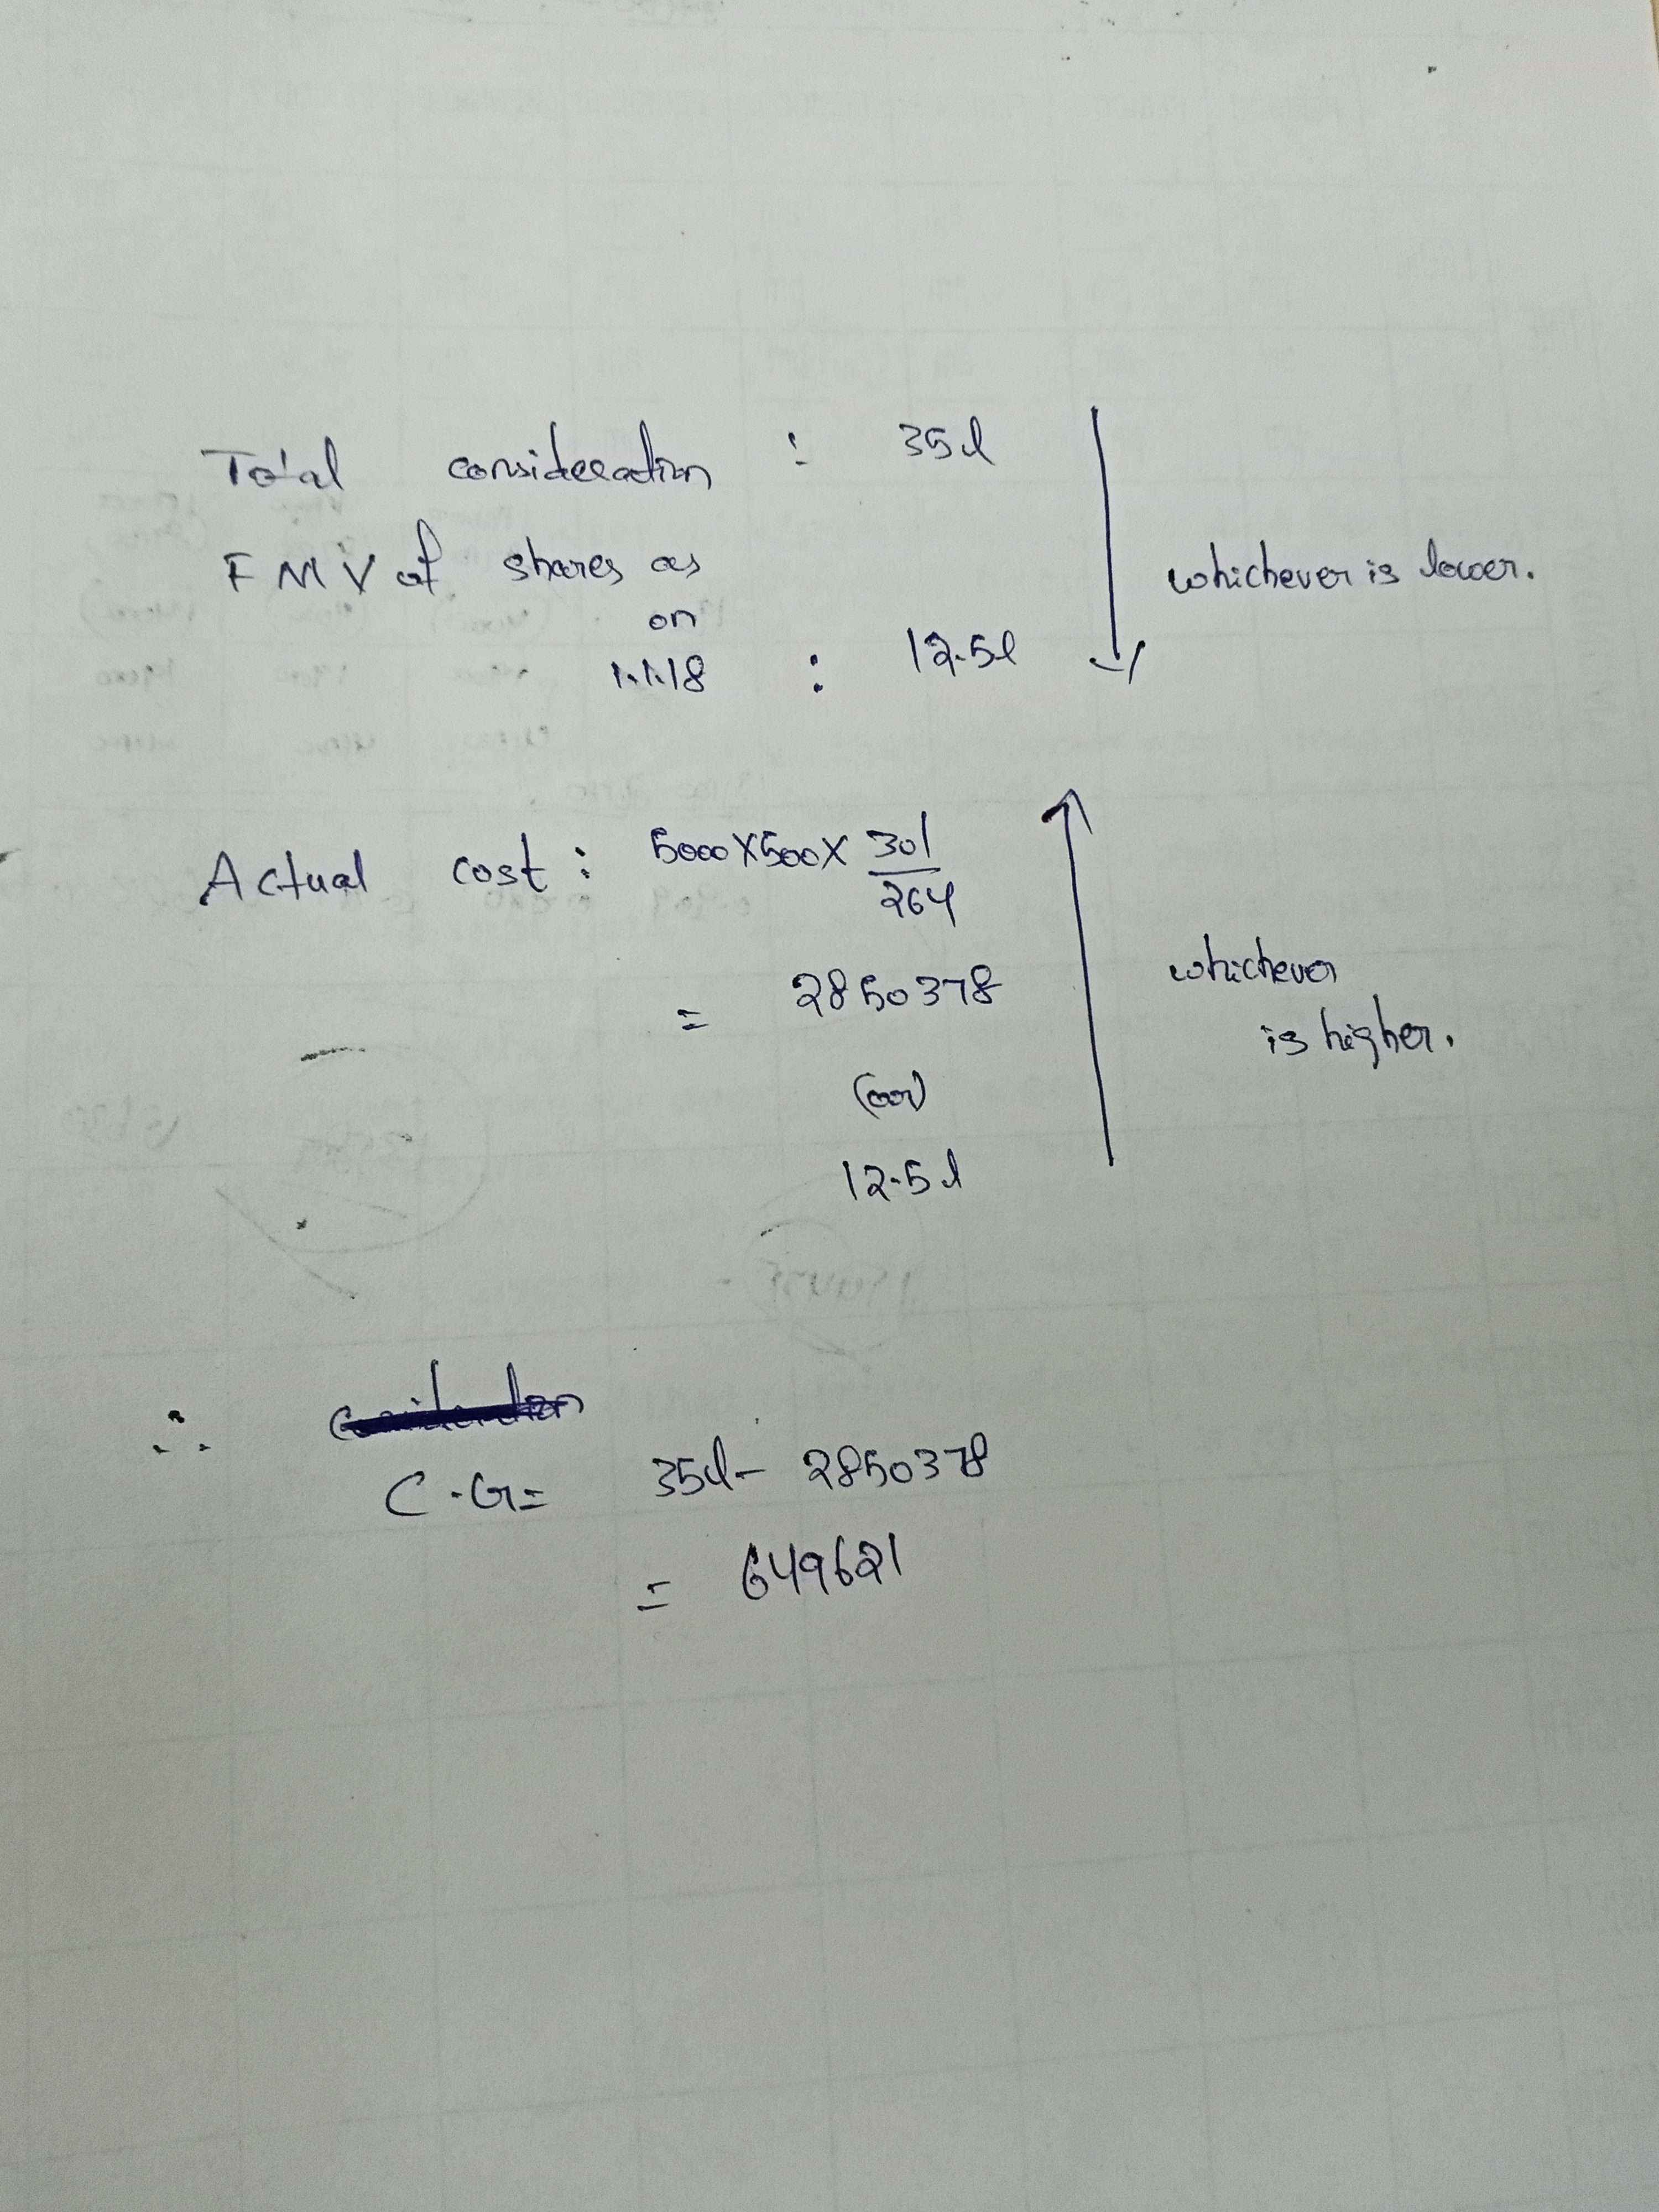 Total consideration : 35l
FMV of shares as
on
1.1.18 : 12.5l
whichever is lower.
Actual cost : 5000X500X 301/264
= 2850378
(or)
12.5l
whichever
is higher.
∴
C.G= 35l- 2850378
= 649621